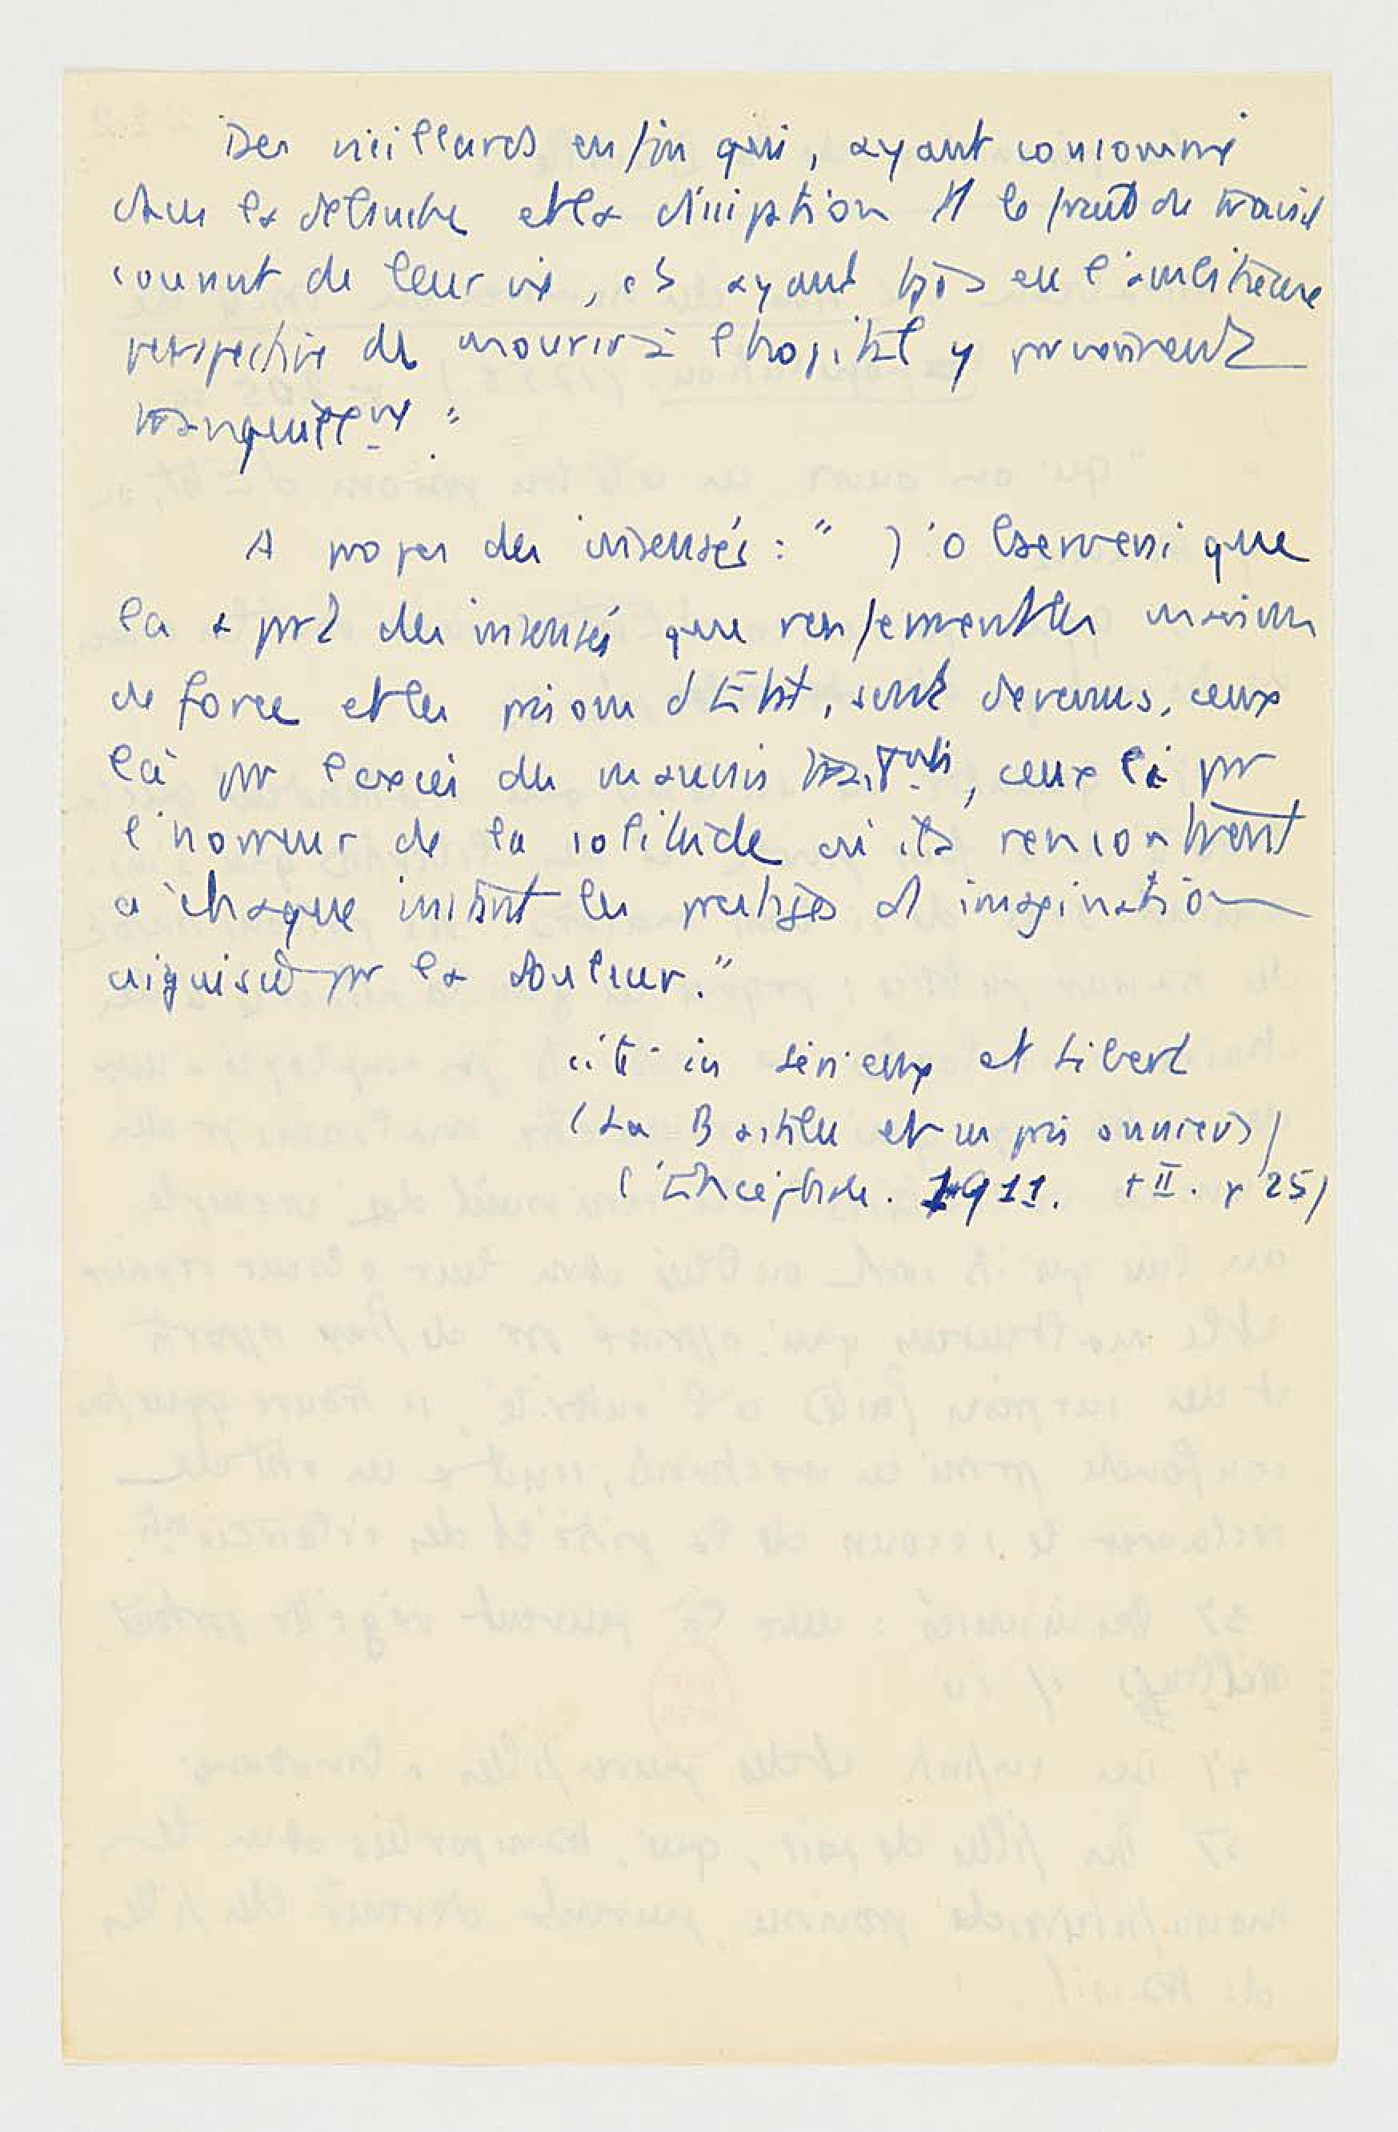 Des vieillards enfin qui, ayant consommé
dans la débauche et la dissipation tt le fruit du travail
courant de leur vie, et ayant tjs eu l'ambitieuse
perspective de mourir à l'hopital y parviennent
tranquillemt "
A propos des insensés : " J'observerai que
la plprt des insensés que renfermentles maisons
de force et les prisons d'État, sont devenus, ceux
là par l'excès du mauvais traitmts, ceux là par
l'horreur de la solitude où ils rencontrent
à chaque instant les prestiges d'imagination
aiguisée par la douleur."
cité in Sérieux et Libert
(La Bastille et ses prisonniers)
l'Encéphale. 1911. t II. p 25)